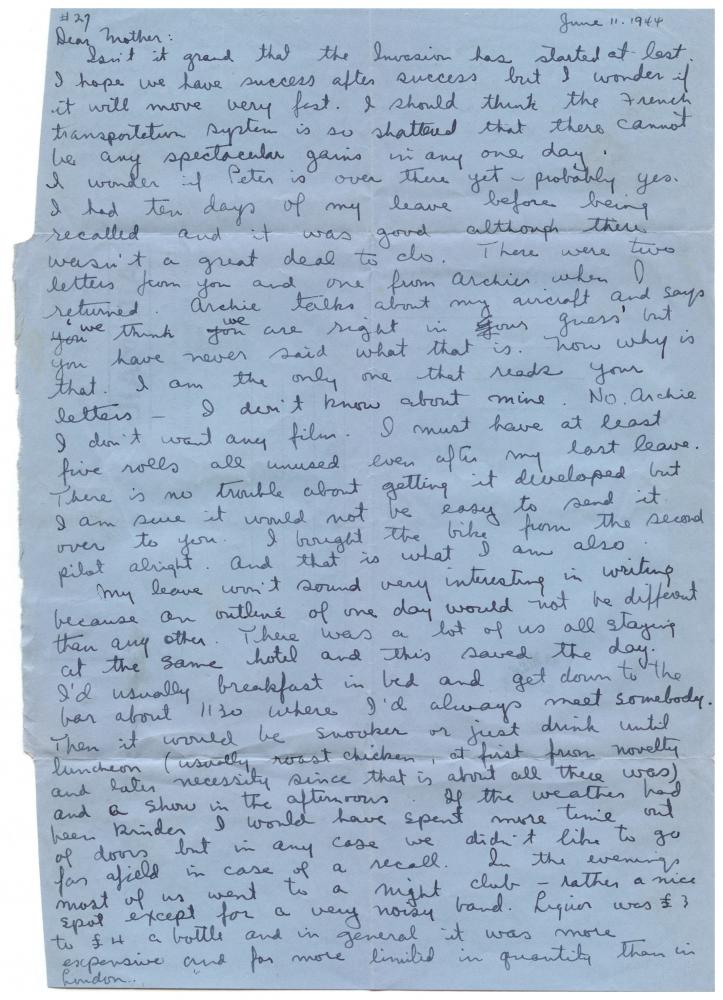 #27 June 11. 1944
Dear Mother:
Isn't it grand that the Invasion has started at last.
I hope we have success after success but I wonder if
it will move very fast. I should think the French
transportation system is so shattered that there cannot
be any spectacular gains in any one day.
I wonder if Peter is over there yet - probably yes.
I had ten days of my leave before being
recalled and it was good although there
wasn't a great deal to do. There were two
letters from you and one from Archie when I
returned. Archie talks about my aircraft and says
"we think we are right in our guess" but
you have never said what that is. Now why is
that. I am the only one that reads your
letters - I don't know about mine. No. Archie
I don't want any film. I must have at least
five rolls all unused even after my last leave.
There is no trouble about getting it developed but
I am sure it would not be easy to send it
over to you. I bought the bike from the second
pilot alright. And that is what I am also.
My leave won't sound very interesting in writing
because an outline of one day would not be different
than any other. There was a lot of us all staying
at the same hotel and this saved the day.
I'd usually breakfast in bed and get down to the
bar about 1130 where I'd always meet somebody.
Then it would be snooker or just drink until
luncheon (usually roast chicken, at first from novelty
and later necessity since that is about all there was)
and a show in the afternoons. If the weather had
been kinder I would have spent more time out
of doors but in any case we didn't like to go
far afield in case of a recall. In the evenings
most of us went to a night club - rather a nice
spot except for a very noisy band. Liquor was £3
to £4 a bottle and in general it was more
expensive and far more limited in quantity than in
London..